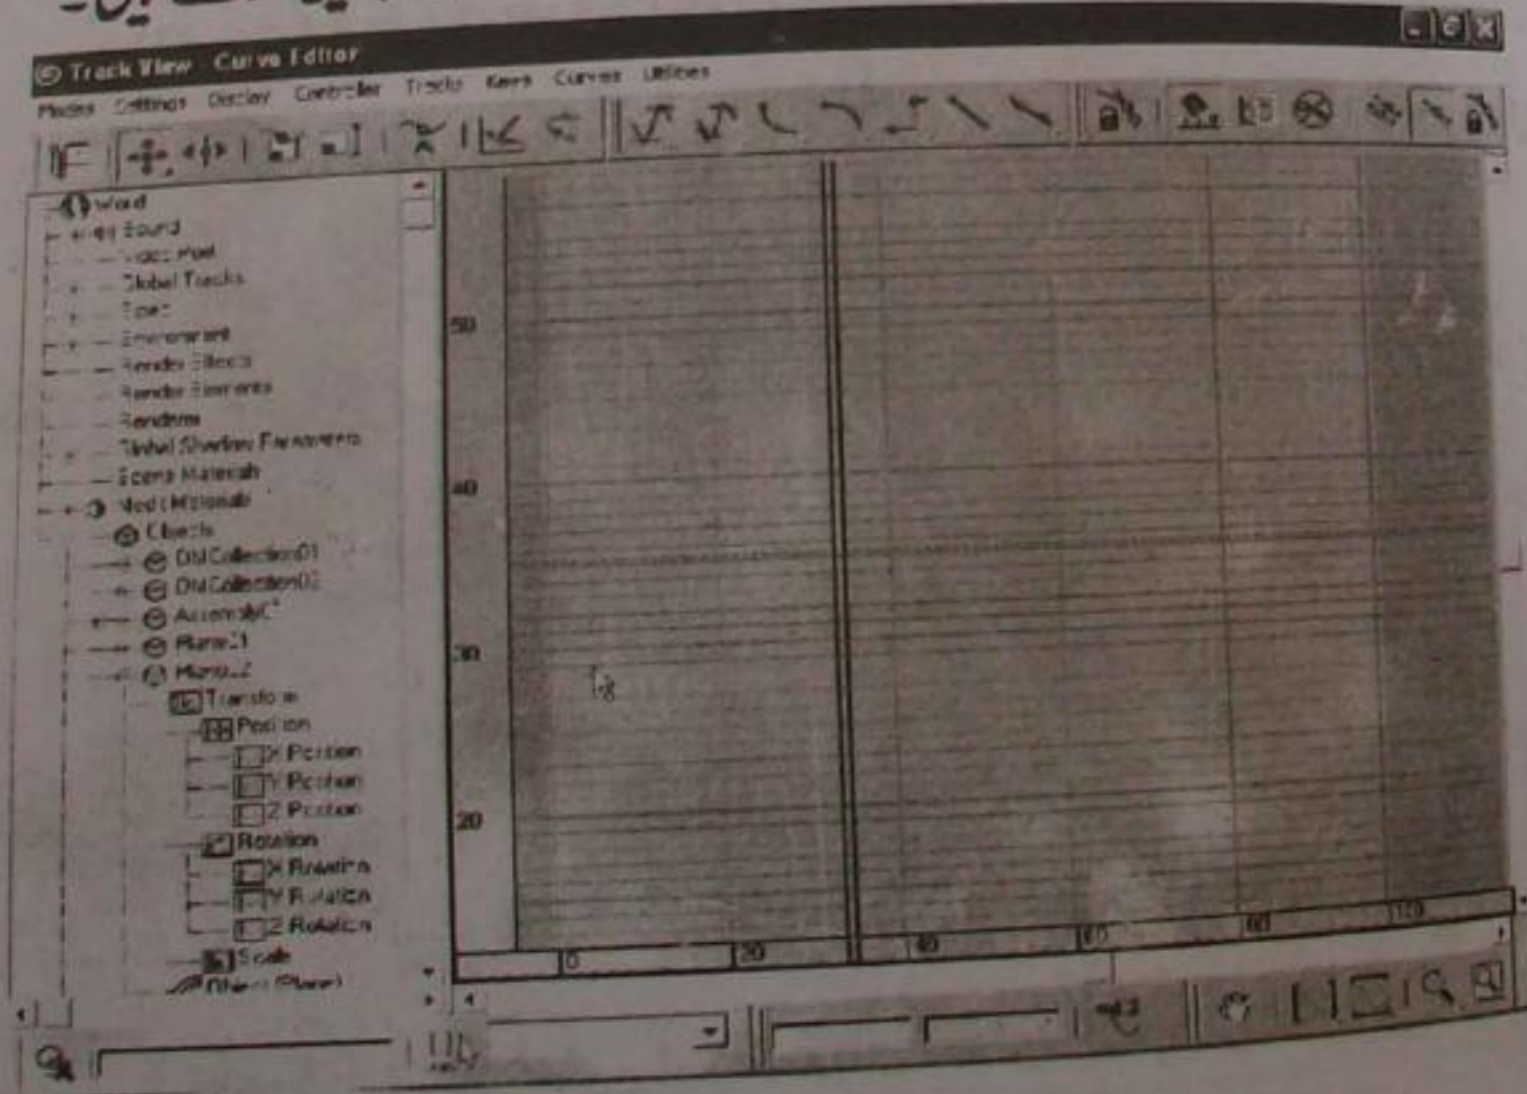 Track View - Curve Editor
Modes Settings Display Controller Tracks Keys Curves Utilities
World
Sound
Video Post
Global Tracks
Environment
Render Effects
Render Elements
Renderer
Global Shadow Parameters
Scene Materials
Medit Materials
Objects
DMCollection01
DMCollection02
Transform
Position
X Position
Y Position
Z Position
Rotation
X Rotation
Y Rotation
Z Rotation
Scale
Object (Plane)
50
40
30
20
0 20 40 60 80 100